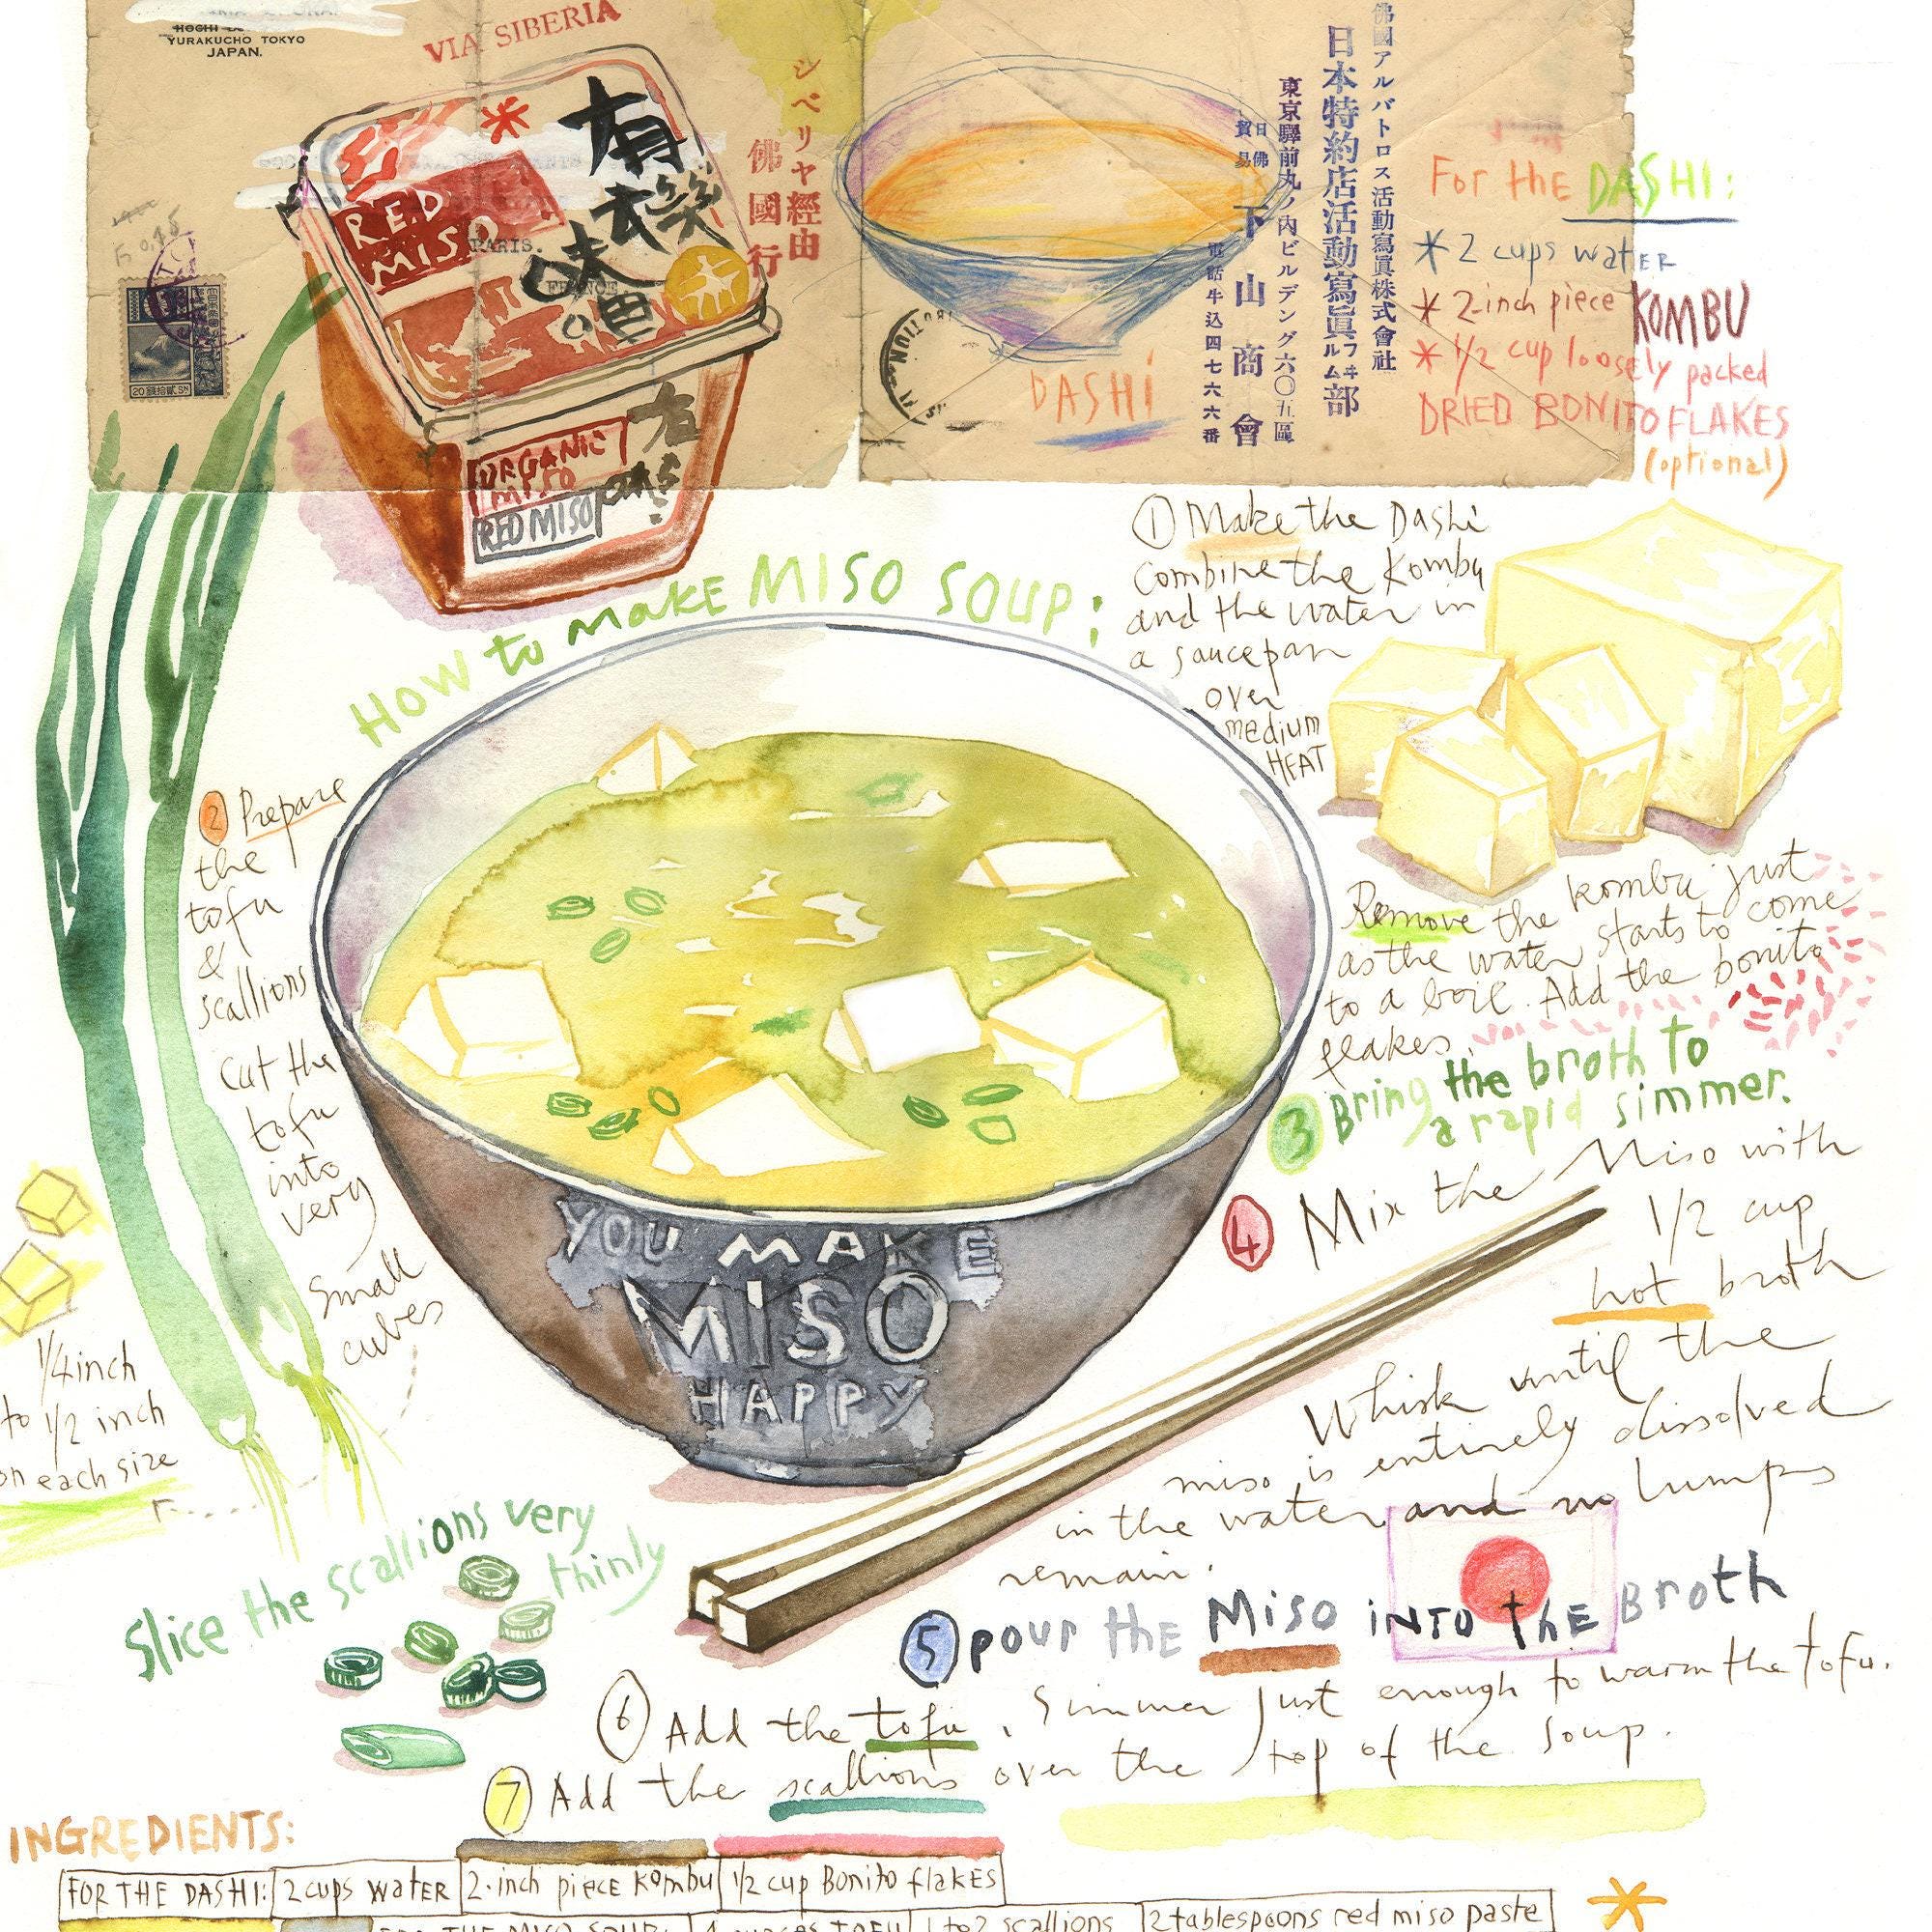 HOCHI
YURAKUCHO TOKYO
JAPAN.
VIA SIBERIA
シベリヤ經由
佛國行
RED
MISO
有
味噌
PARIS.
FRANCE
20 SN
ORGANIC
MISO
RED MISO
DASHi
佛國アルバトロス活動寫眞株式會社
日本特約店活動寫眞フヰルム部
東京驛前丸ノ内ビルデング六〇五區
日佛
貿易
下山商會
電話牛込四七六六番
For the DASHI:
* 2 cups water
* 2-inch piece KOMBU
* 1/2 cup loosely packed
DRIED BONITO FLAKES
(optional)
How to make MISO SOUP:
1 Make the Dashi
Combine the Kombu
and the water in
a saucepan
over
medium
HEAT
Remove the kombu just
as the water starts to come
to a boil. Add the bonito
flakes.
2 Prepare
the
tofu
&
scallions
Cut the
tofu
into
very
small
cubes
1/4 inch
to 1/2 inch
on each size
Slice the scallions very
thinly
3 Bring the broth to
a rapid simmer.
4 Mix the Miso with
1/2 cup
hot broth
Whisk until the
miso is entirely dissolved
in the water and no lumps
remain.
YOU MAKE
MISO
HAPPY
5 pour the Miso iNTO thE Broth
6 Add the tofu, Simmer just enough to warm the tofu.
7 Add the scallions over the top of the soup.
INGREDIENTS:
FOR THE DASHI: 2 cups water 2-inch piece Kombu 1/2 cup Bonito flakes
FOR THE MISO SOUP: 4 ounces TOFU 1 to 2 scallions 2 tablespoons red miso paste